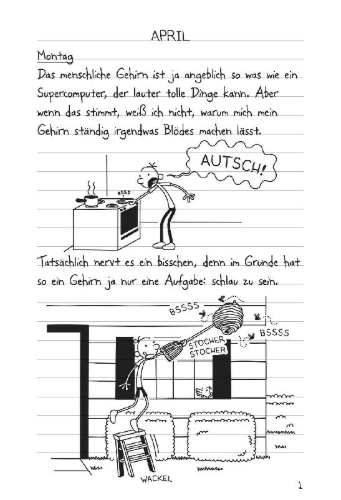 APRIL
Montag
Das menschliche Gehirn ist ja angeblich so was wie ein
Supercomputer, der lauter tolle Dinge kann. Aber
wenn das stimmt, weiß ich nicht, warum mich mein
Gehirn ständig irgendwas Blödes machen lässt.
AUTSCH!
BSSS
Tatsächlich nervt es ein bisschen, denn im Grunde hat
so ein Gehirn ja nur eine Aufgabe: schlau zu sein.
BSSSS
BSSSS
STOCHER
STOCHER
WACKEL
1